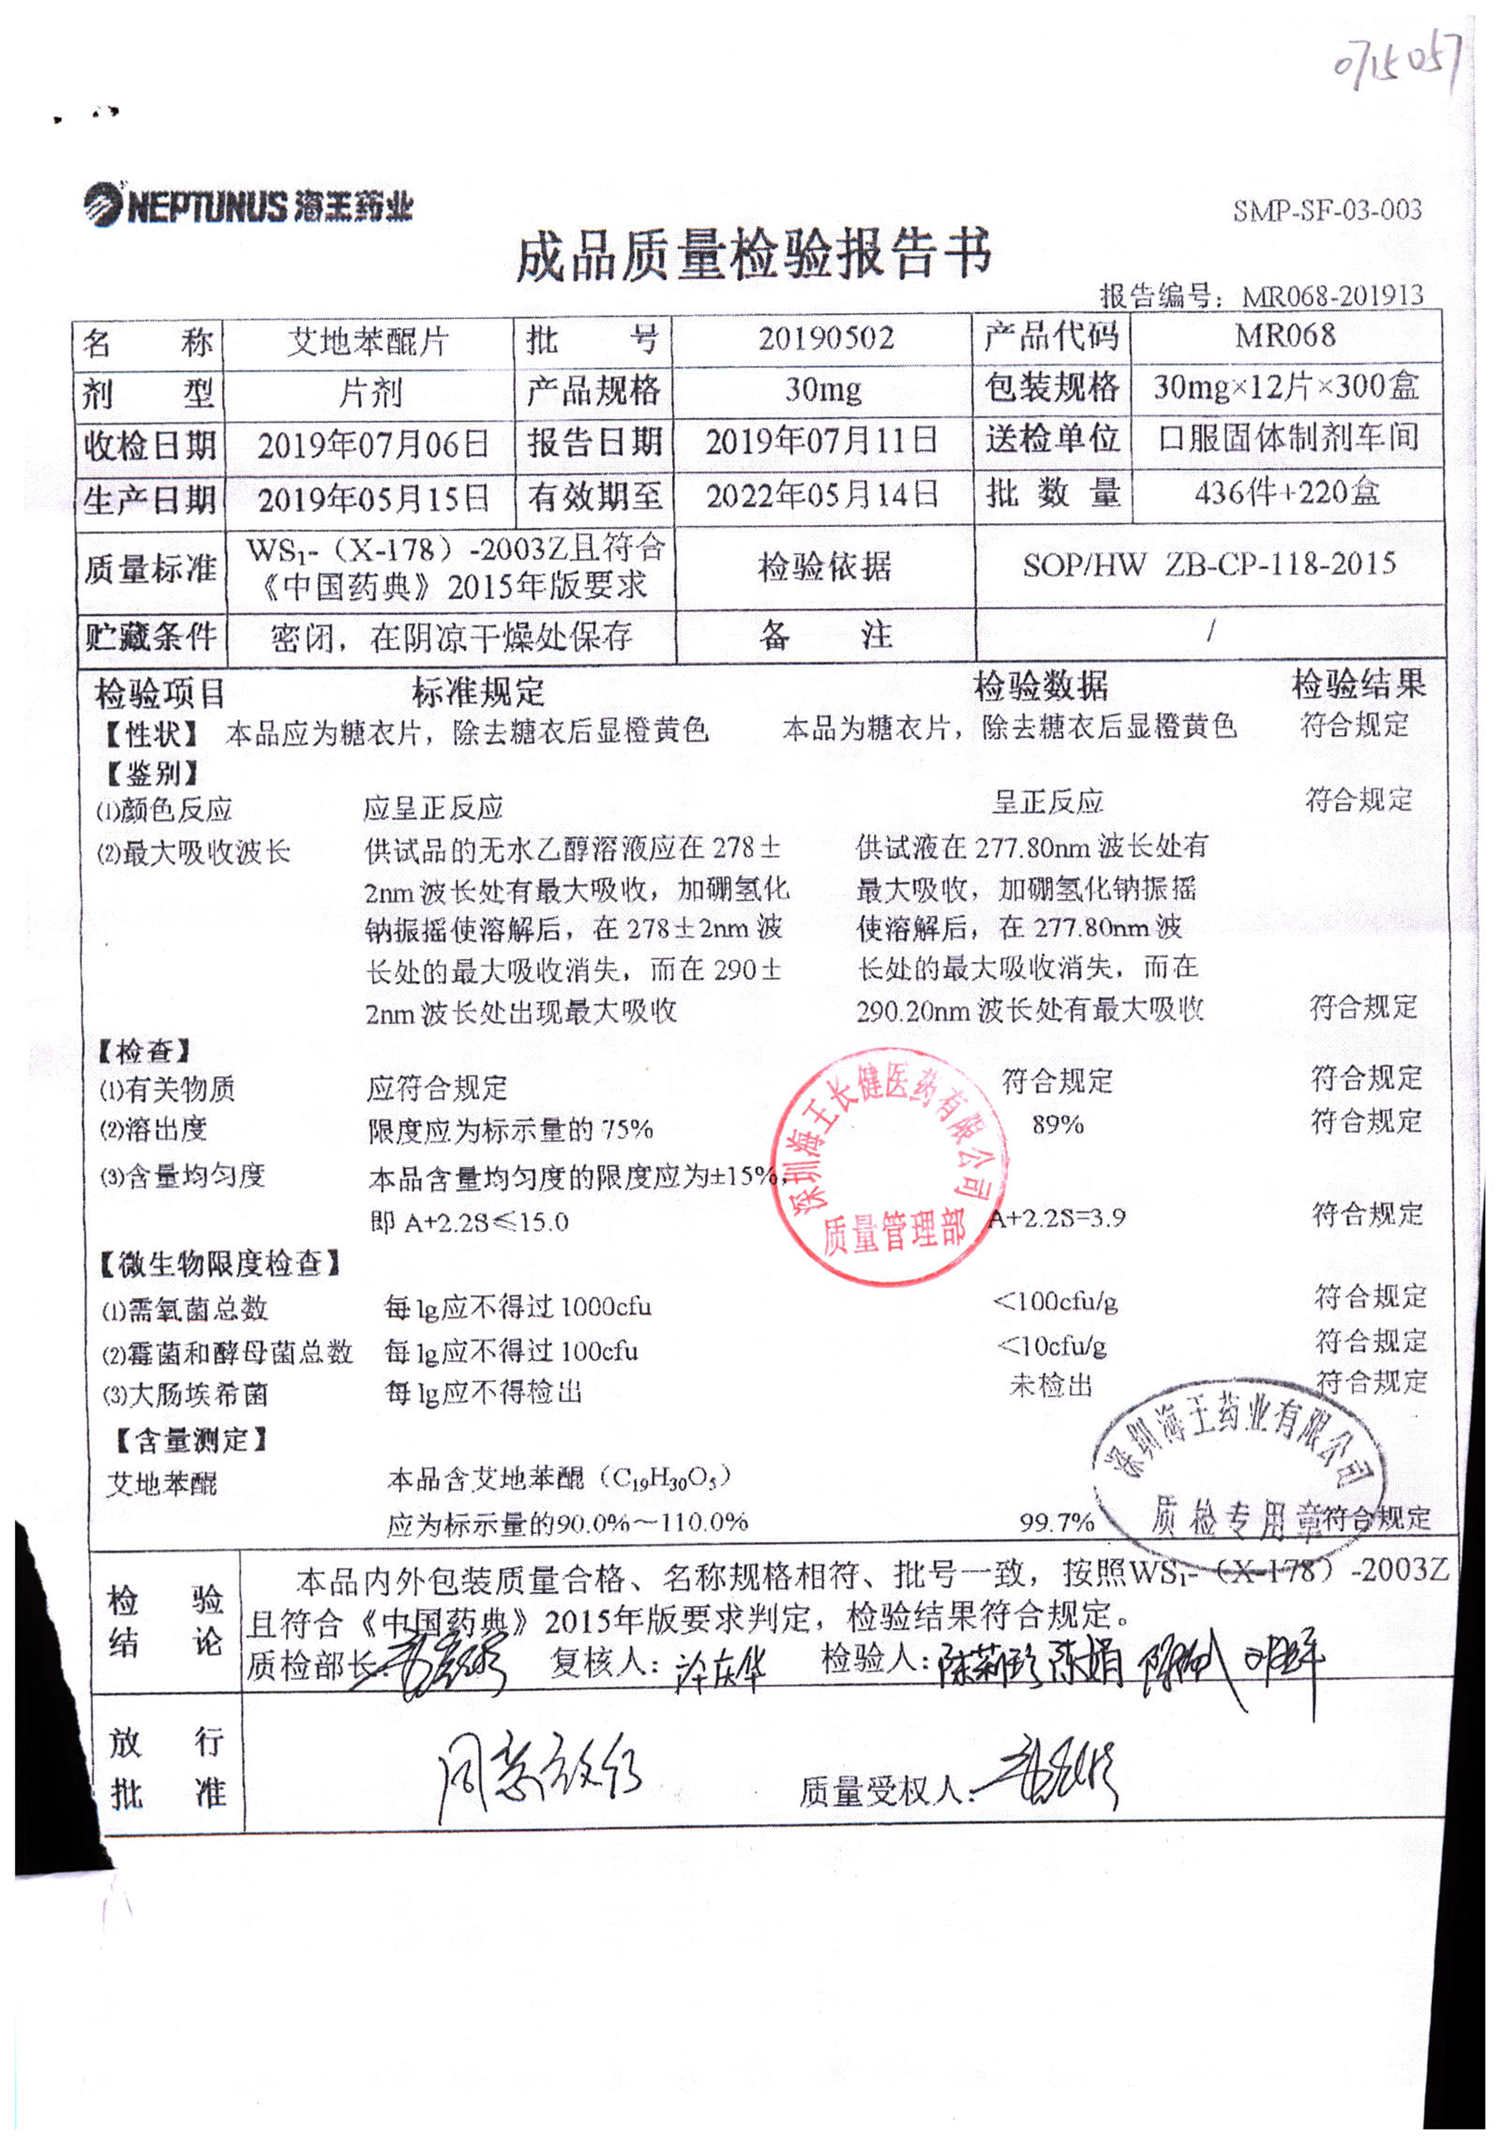 0715057
NEPTUNUS 海王药业
SMP-SF-03-003
成品质量检验报告书
报告编号：MR068-201913
名 称 艾地苯醌片 批 号 20190502 产品代码 MR068
剂 型 片剂 产品规格 30mg 包装规格 30mg×12片×300盒
收检日期 2019年07月06日 报告日期 2019年07月11日 送检单位 口服固体制剂车间
生产日期 2019年05月15日 有效期至 2022年05月14日 批 数 量 436件+220盒
质量标准 WS₁-（X-178）-2003Z且符合《中国药典》2015年版要求 检验依据 SOP/HW ZB-CP-118-2015
贮藏条件 密闭，在阴凉干燥处保存 备 注 /
检验项目 标准规定 检验数据 检验结果
【性状】 本品应为糖衣片，除去糖衣后显橙黄色 本品为糖衣片，除去糖衣后显橙黄色 符合规定
【鉴别】
⑴颜色反应 应呈正反应 呈正反应 符合规定
⑵最大吸收波长 供试品的无水乙醇溶液应在 278± 供试液在 277.80nm 波长处有
2nm 波长处有最大吸收，加硼氢化 最大吸收，加硼氢化钠振摇
钠振摇使溶解后，在 278±2nm 波 使溶解后，在 277.80nm 波
长处的最大吸收消失，而在 290± 长处的最大吸收消失，而在
2nm 波长处出现最大吸收 290.20nm 波长处有最大吸收 符合规定
【检查】
⑴有关物质 应符合规定 符合规定 符合规定
⑵溶出度 限度应为标示量的 75% 89% 符合规定
⑶含量均匀度 本品含量均匀度的限度应为±15%，
即 A+2.2S≤15.0 A+2.2S=3.9 符合规定
深圳海王长健医药有限公司
质量管理部
【微生物限度检查】
⑴需氧菌总数 每 1g应不得过 1000cfu <100cfu/g 符合规定
⑵霉菌和酵母菌总数 每 1g应不得过 100cfu <10cfu/g 符合规定
⑶大肠埃希菌 每 1g应不得检出 未检出 符合规定
【含量测定】
艾地苯醌 本品含艾地苯醌（C₁₉H₃₀O₅）
应为标示量的90.0%～110.0% 99.7% 符合规定
深圳海王药业有限公司
质检专用章
检 验 结 论
本品内外包装质量合格、名称规格相符、批号一致，按照WS₁-（X-178）-2003Z
且符合《中国药典》2015年版要求判定，检验结果符合规定。
质检部长： 复核人： 检验人：陈莉珍 陈娟
放 行 批 准 同意放行 质量受权人：